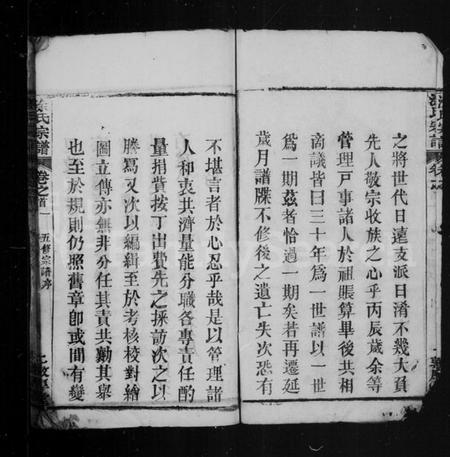 之將世代日遠支派日淆不幾大負
先人敬宗收族之心乎丙辰歲余等
管理戸事諸人於祖賬算畢後共相
商議皆曰三十年為一世譜以一世
爲一期茲者恰過一期矣若再遷延
歲月譜牒不修後之遺亡失次恐有
不堪言者於心忍乎哉是以管理諸
人和衷共濟量能分職各專責任酌
量捐貲按丁出費先之採訪次之以
謄寫又次以編緝至於考核校對繪
圖立傳亦無非分任其責共勷其舉
也至於規則仍照舊章卽或間有變
氏宗譜
卷之首
五修宗譜序